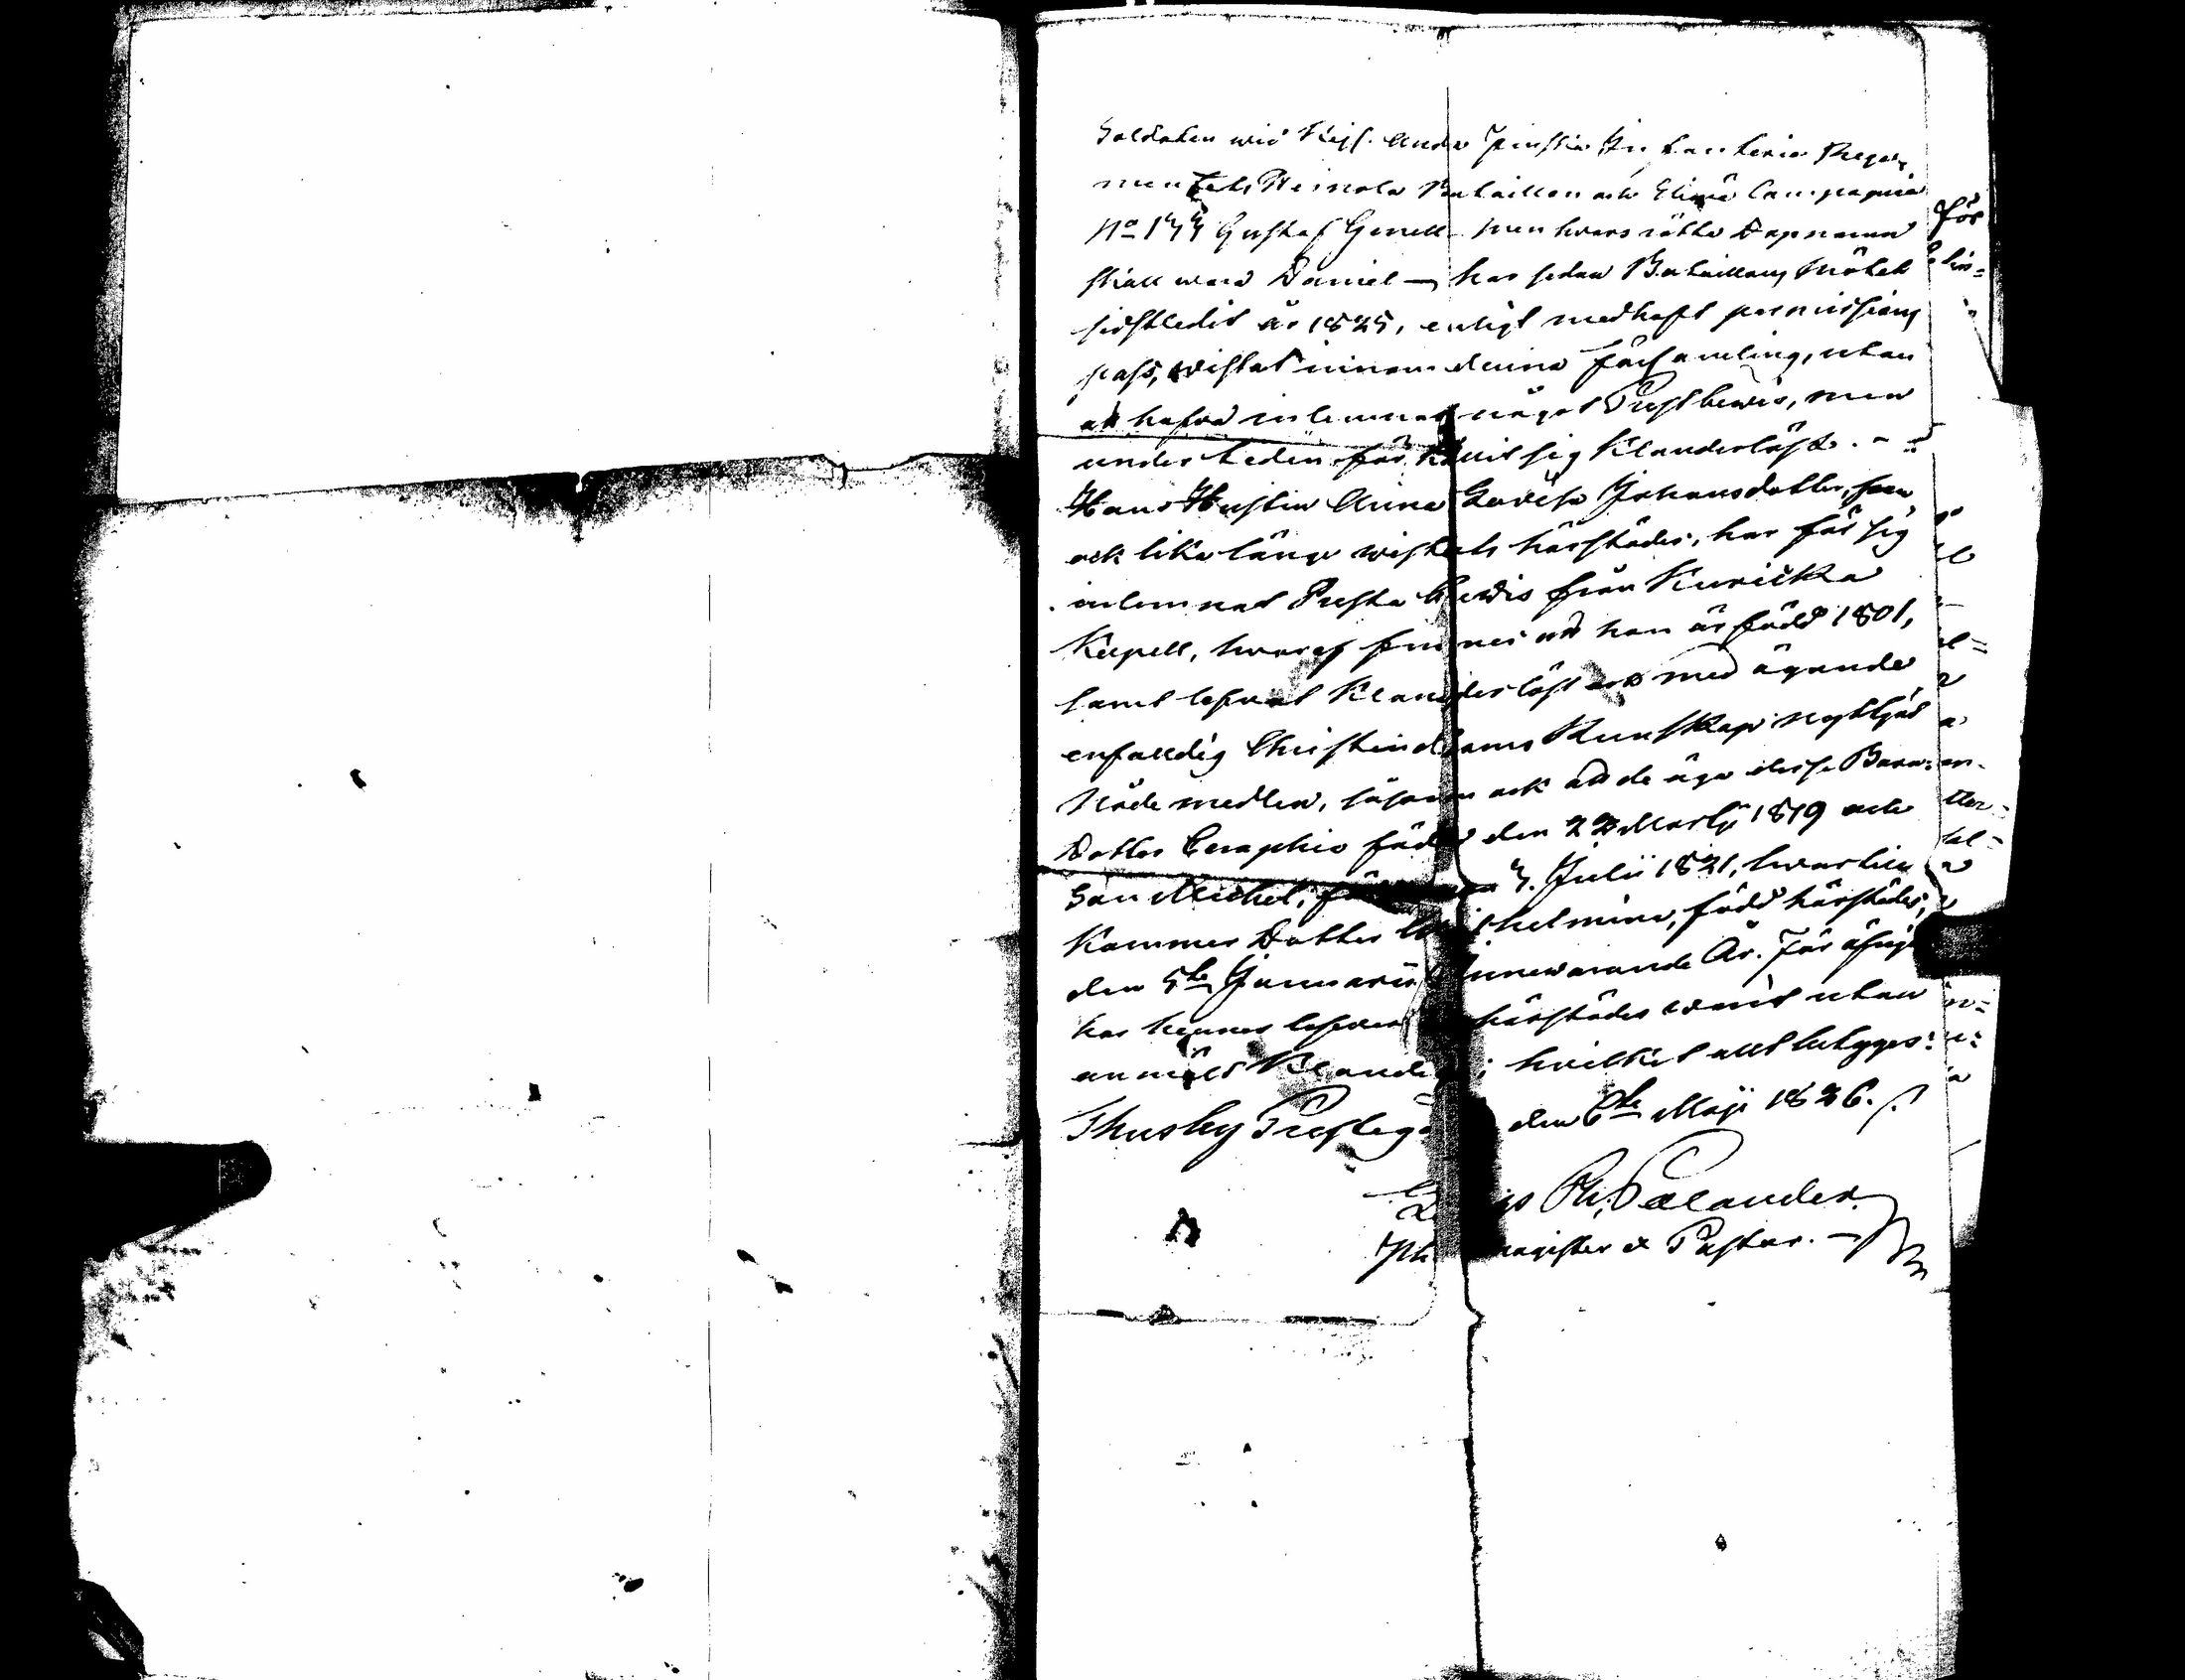 Soldaten wid Kejs. Andra Finska Infanterie Rege-
mentets Heinola Bataillon och Elimä Compagnie
No 177 Gustaf Genell men hvars rätta Dopnamn
skall wara Daniel — har sedan Bataillons Mötet
sidstledit år 1825, enligt medhaft permissions
pass, wistats innom denna församling, utan
att hafva inlemnat något Prestbewis, men
under tiden förhållit sig Klanderlöst. - -
Hans Hustru Anna Lovisa Johansdotter, som
ock lika länge wistats härstädes, har för sig
inlemnat Presta bewis från Kuricka
Kapell, hwaraf finnes att hon är född 1801,
samt lefwat Klanderlöst och med ägande
enfalldig Christendoms Kunskap nyttjat
Nådemedlen, såsom ock att de äga desse Barn:
Dotter Ceraphia född den 22 Martii 1819 och
Son Michel, född den 7. Julii 1821, hwartill
Kommer Dotter Wilhelmina, född härstädes,
den 5te Januarii innewarande År. För öfrigt
har hennes lefwerne härstädes warit utan
anmält Klander; hvilket allt betygas:
Thusby Prestegård den 6te Maji 1826.
Palander
Phil. magister & Pastor.
för